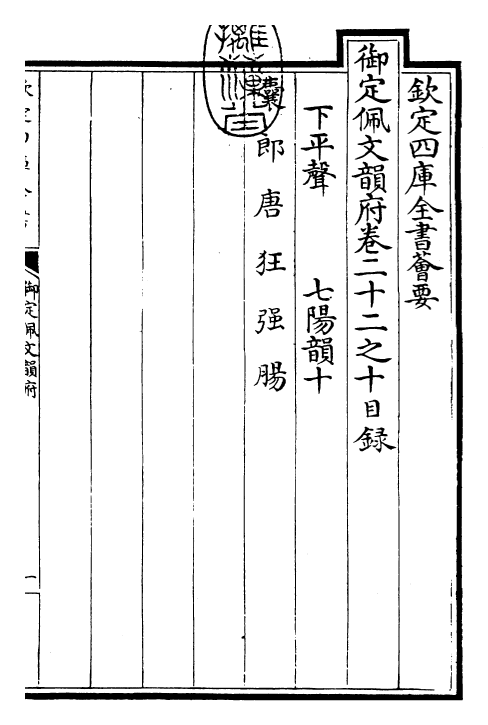 欽定四庫全書薈要
御定佩文韻府卷二十二之十目録
下平聲 七陽韻十
囊 郎 唐 狂 强 腸
御定佩文韻府
一